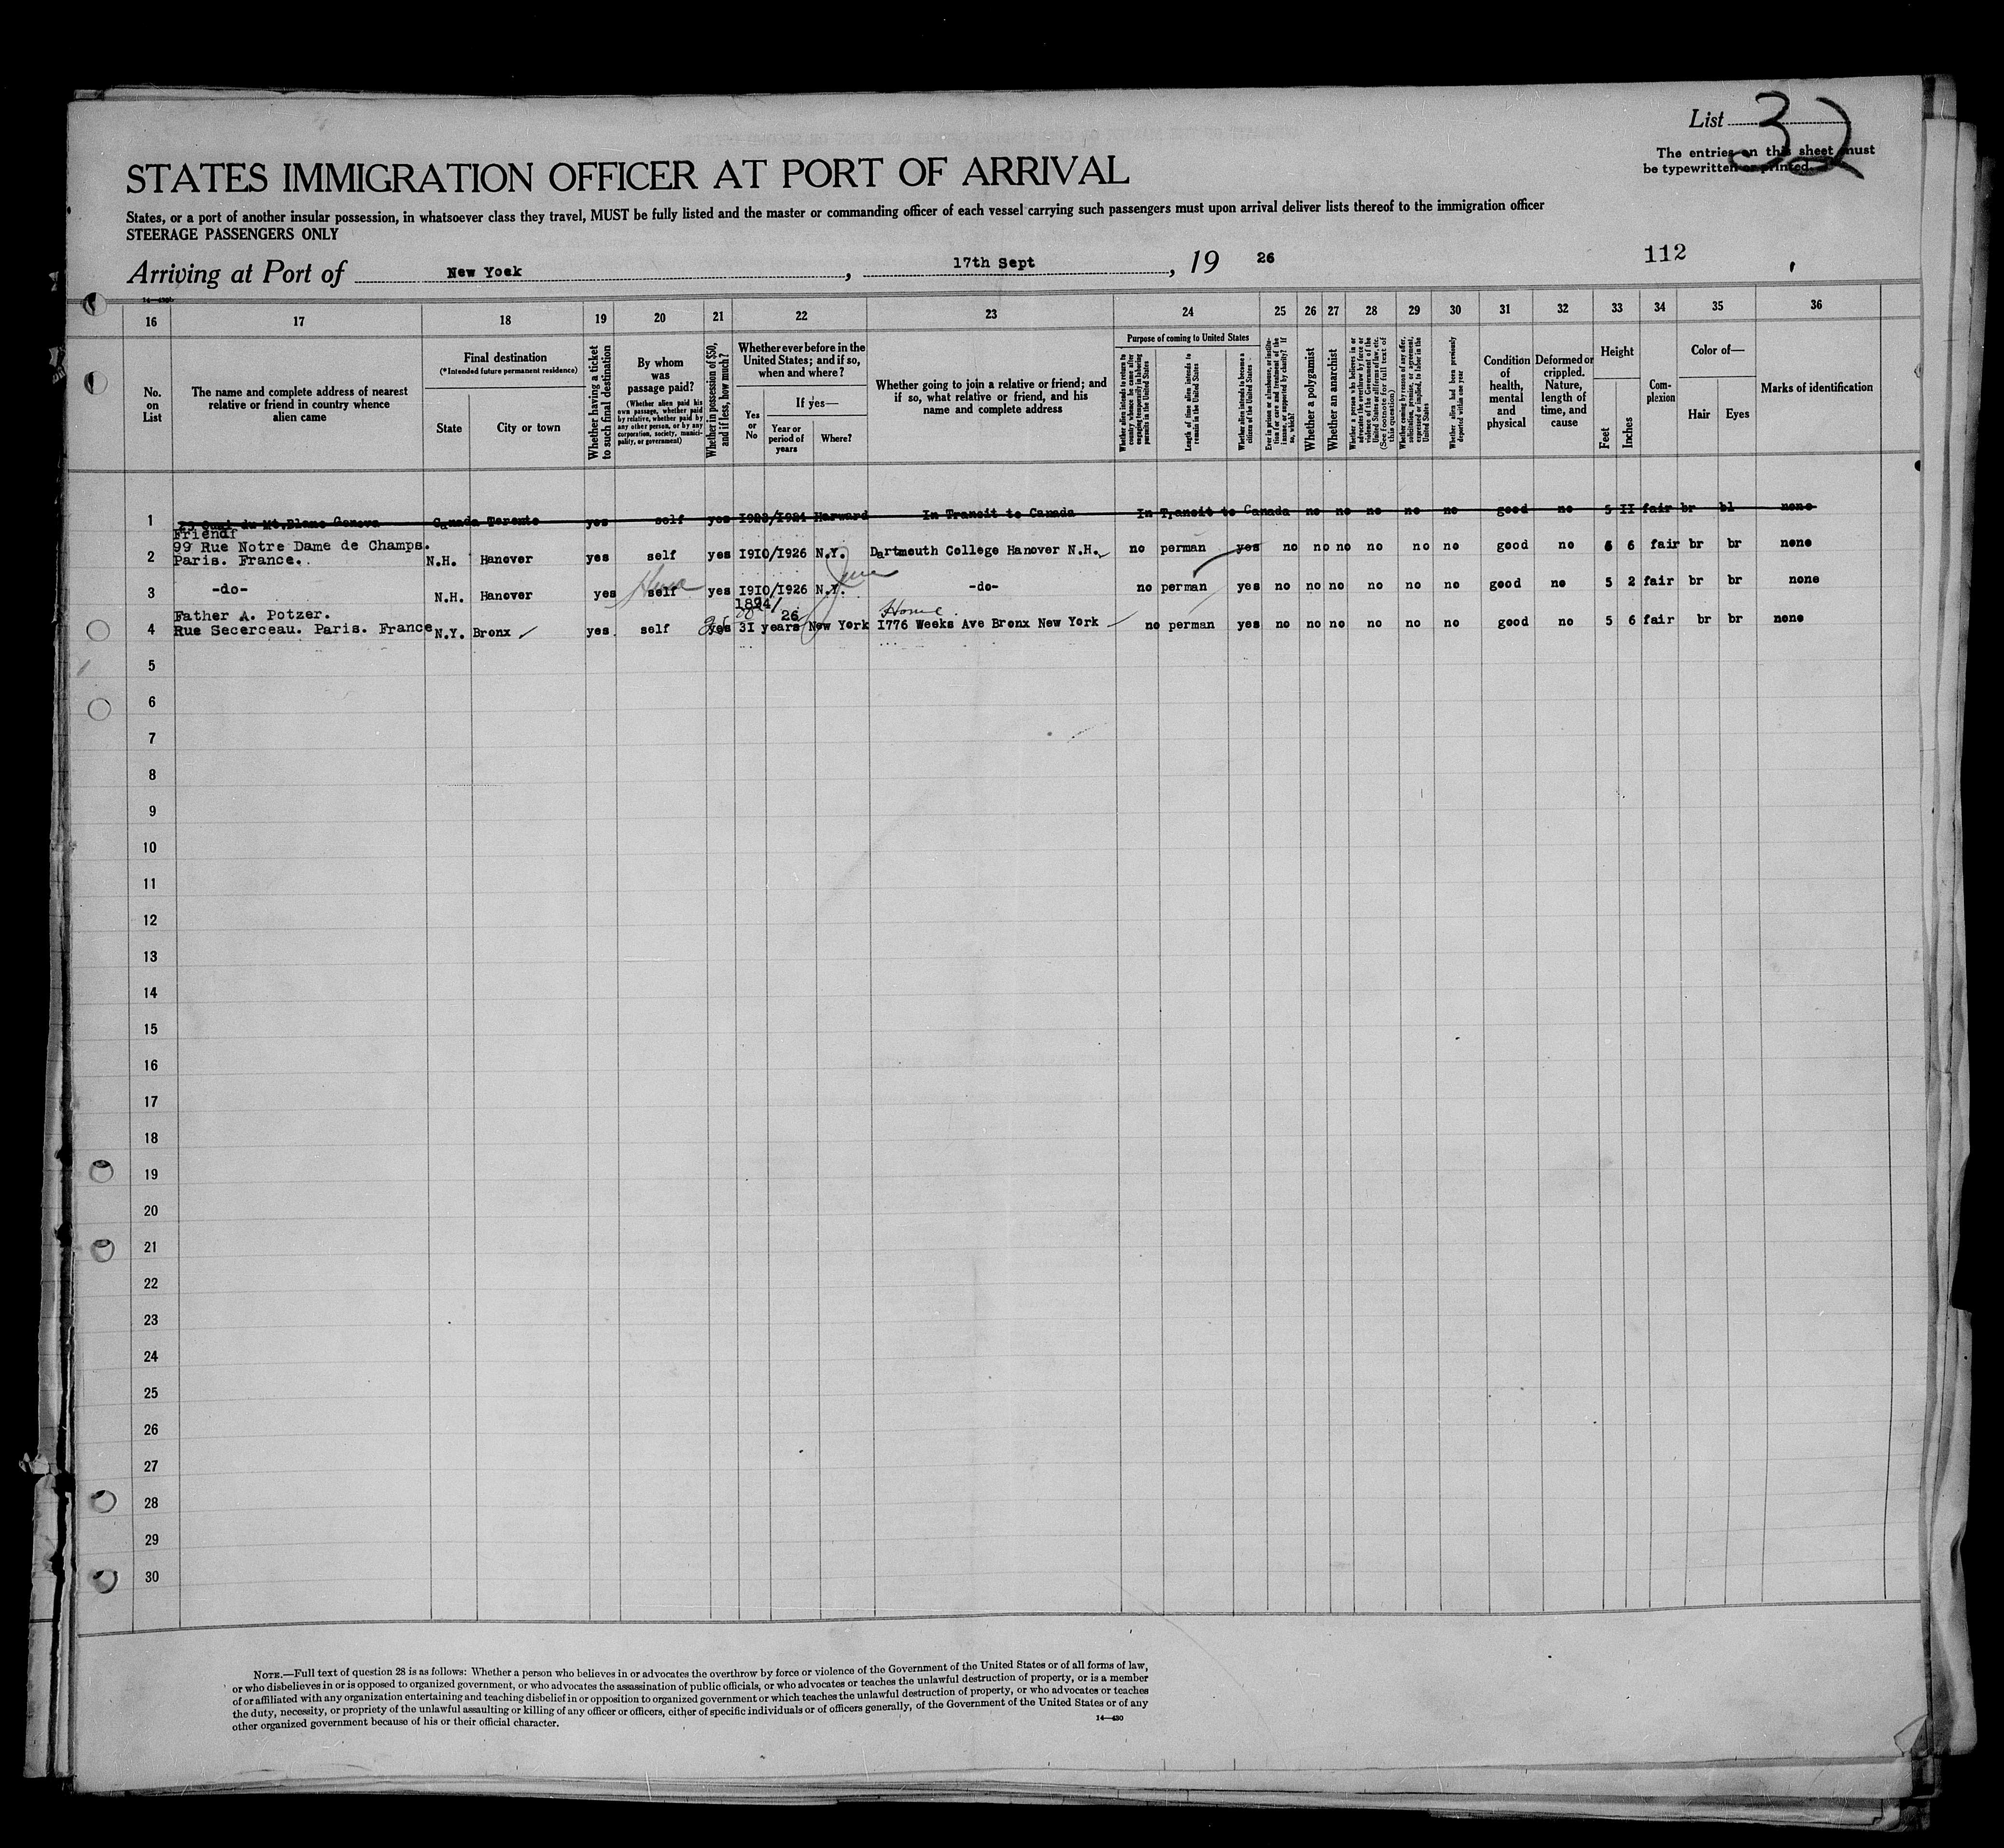 List 32
The entries on this sheet must
be typewritten or printed.
STATES IMMIGRATION OFFICER AT PORT OF ARRIVAL
States, or a port of another insular possession, in whatsoever class they travel, MUST be fully listed and the master or commanding officer of each vessel carrying such passengers must upon arrival deliver lists thereof to the immigration officer
STEERAGE PASSENGERS ONLY
Arriving at Port of New Yoek, 17th Sept, 19 26
112
16 17 18 19 20 21 22 23 24 25 26 27 28 29 30 31 32 33 34 35 36
No. on List
The name and complete address of nearest relative or friend in country whence alien came
Final destination
(*Intended future permanent residence)
State
City or town
Whether having a ticket to such final destination
By whom was passage paid?
(Whether alien paid his own passage, whether paid by relative, whether paid by any other person, or by any corporation, society, municipality, or government)
Whether in possession of $50, and if less, how much?
Whether ever before in the United States; and if so, when and where?
Yes or No
If yes—
Year or period of years
Where?
Whether going to join a relative or friend; and if so, what relative or friend, and his name and complete address
Purpose of coming to United States
Whether alien intends to return to country whence he came after engaging temporarily in laboring pursuits in the United States
Length of time alien intends to remain in the United States
Whether alien intends to become a citizen of the United States
Ever in prison or almshouse, or institution for care and treatment of the insane, or supported by charity? If so, which?
Whether a polygamist
Whether an anarchist
Whether a person who believes in or advocates the overthrow by force or violence of the Government of the United States or all forms of law, etc. (See footnote for full text of this question)
Whether coming by reason of any offer, solicitation, promise, or agreement, expressed or implied, to labor in the United States
Whether alien had been previously deported within one year
Condition of health, mental and physical
Deformed or crippled. Nature, length of time, and cause
Height
Feet
Inches
Complexion
Color of—
Hair
Eyes
Marks of identification
1 23 Quai du Mt.Blanc Geneva Canada Toronto yes self yes 1923/1924 Harward In Transit to Canada In Transit to Canada no no no no no no good no 5 II fair br bl none
Friend
2 99 Rue Notre Dame de Champs. N.H. Hanover yes self yes I9I0/I926 N.Y. Dartmouth College Hanover N.H. no perman yes no no no no no no good no 6 6 fair br br none
Paris. France.
3 -do- N.H. Hanover yes self yes I9I0/I926 N.Y. -do- no perman yes no no no no no no good no 5 2 fair br br none
1894/
26
Home
Father A. Potzer.
4 Rue Secerceau. Paris. France N.Y. Bronx yes. self yes 3I years New York I776 Weeks Ave Bronx New York no perman yes no no no no no no good no 5 6 fair br br none
5
6
7
8
9
10
11
12
13
14
15
16
17
18
19
20
21
22
23
24
25
26
27
28
29
30
NOTE.—Full text of question 28 is as follows: Whether a person who believes in or advocates the overthrow by force or violence of the Government of the United States or of all forms of law,
or who disbelieves in or is opposed to organized government, or who advocates the assassination of public officials, or who advocates or teaches the unlawful destruction of property, or is a member
of or affiliated with any organization entertaining and teaching disbelief in or opposition to organized government or which teaches the unlawful destruction of property, or who advocates or teaches
the duty, necessity, or propriety of the unlawful assaulting or killing of any officer or officers, either of specific individuals or of officers generally, of the Government of the United States or of any
other organized government because of his or their official character.
14—430